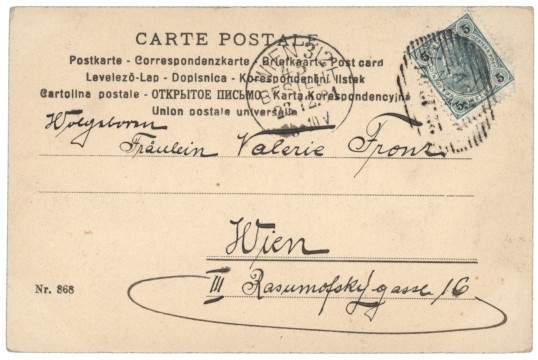 CARTE POSTALE
Postkarte - Correspondenzkarte - Briefkaarte - Post card
Levelező-Lap - Dopisnica - Korespondenční lístek
Cartolina postale - ОТКРЫТОЕ ПИСЬМО - Karta Korespondencyjna
Union postale universelle
WIEN 3/3
5 5
5 5
Fräulein Valerie Franz
Wien
III Rasumofskygasse 16
Nr. 868